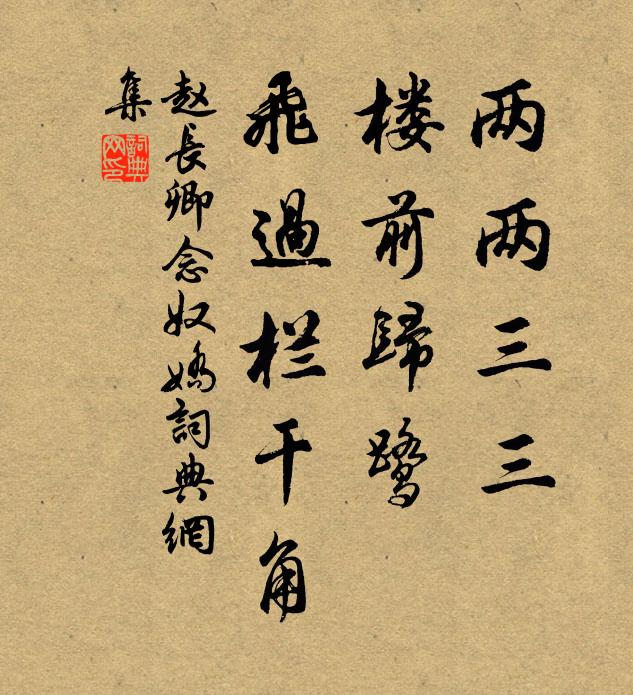 两两三三
楼前歸鹭
飛過栏干角
赵長卿念奴嬌詞典網
集
詞典
网印